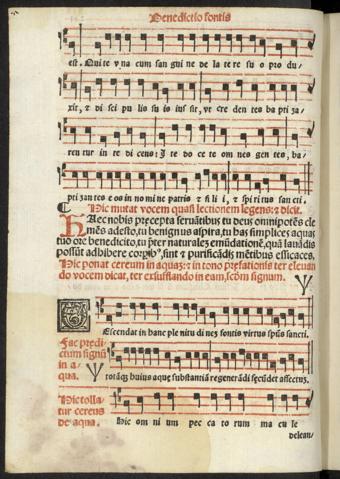 Benedictio fontis
est. Qui te v na cum san gui ne de la te re su o pro du/
xit, ⁊ di sci pu lis su is ius sit, vt cre den tes ba pti za/
ren tur in te di cens: J te do ce te om nes gen tes, ba/
pti zan tes e os in no mi ne patris ⁊ fi li i, ⁊ spi ritus san cti.
Hic mutat vocem quasi lectionem legens: ⁊ dicit.
HAec nobis precepta seruātibus tu deus omnipotēs cle
mēs adesto, tu benignus aspira, tu has simplices aquas
tuo ore benedicito, vt p̄ter naturalē emūdationē, quā lauādis
possūt adhibere corpibꝰ, sint ⁊ purificādis mētibus efficaces.
Hic ponat cereum in aquaz: ⁊ in tono prefationis ter eleuan
do vocem dicat, ter exsufflando in eam, scdm signum. Ψ
DEscendat in hanc ple nitu di nez fontis virtus spūs sancti.
Fac predi
ctum signū
in a/
qua. Ψ
totāqz huius aque substantiā regenerādi fecūdet affectu.
Hic tolla/
tur cereus
de aqua.
Hic om ni um pec ca to rum ma cu le
delean/